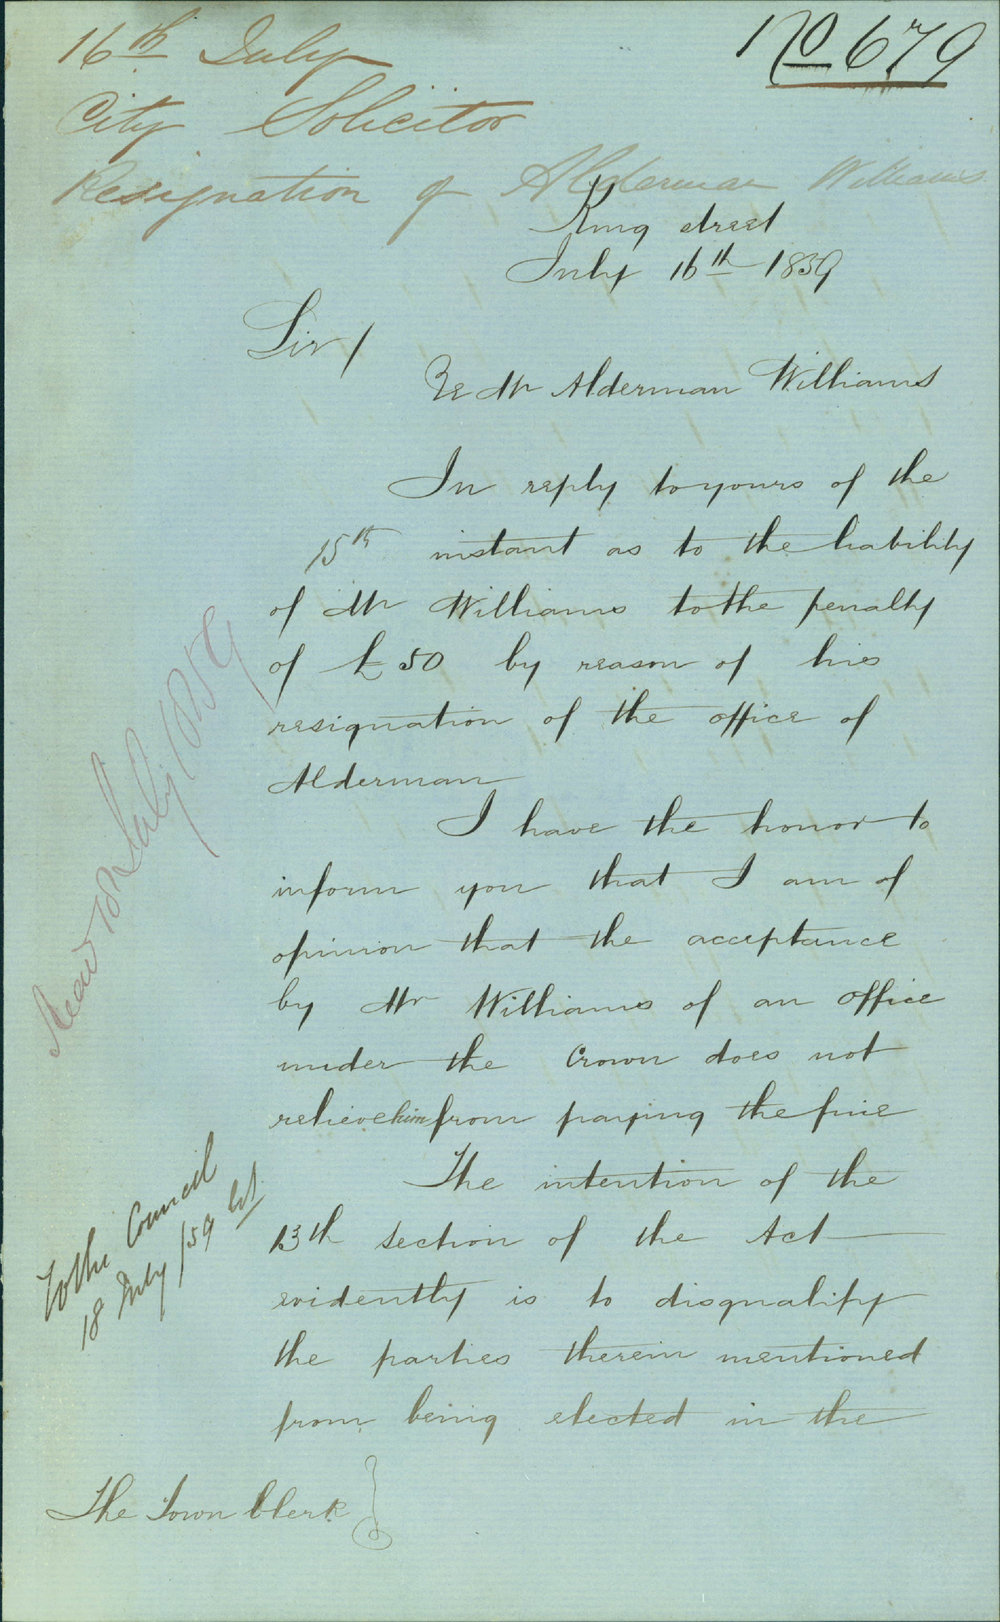 No 679
16th July
City Solicitor
Resignation of Alderman Williams
King street
July 16th 1859
Sir/
Re Mr Alderman Williams
In reply to yours of the
15th instant as to the liability
of Mr Williams to the penalty
of £50 by reason of his
resignation of the office of
Alderman
I have the honor to
inform you that I am of
opinion that the acceptance
by Mr Williams of an office
under the Crown does not
relieve him from paying the fine
The intention of the
13th section of the Act
evidently is to disqualify
the parties therein mentioned
from being elected in the
The Town Clerk
Read 18 July 1859
To the Council
18 July /59